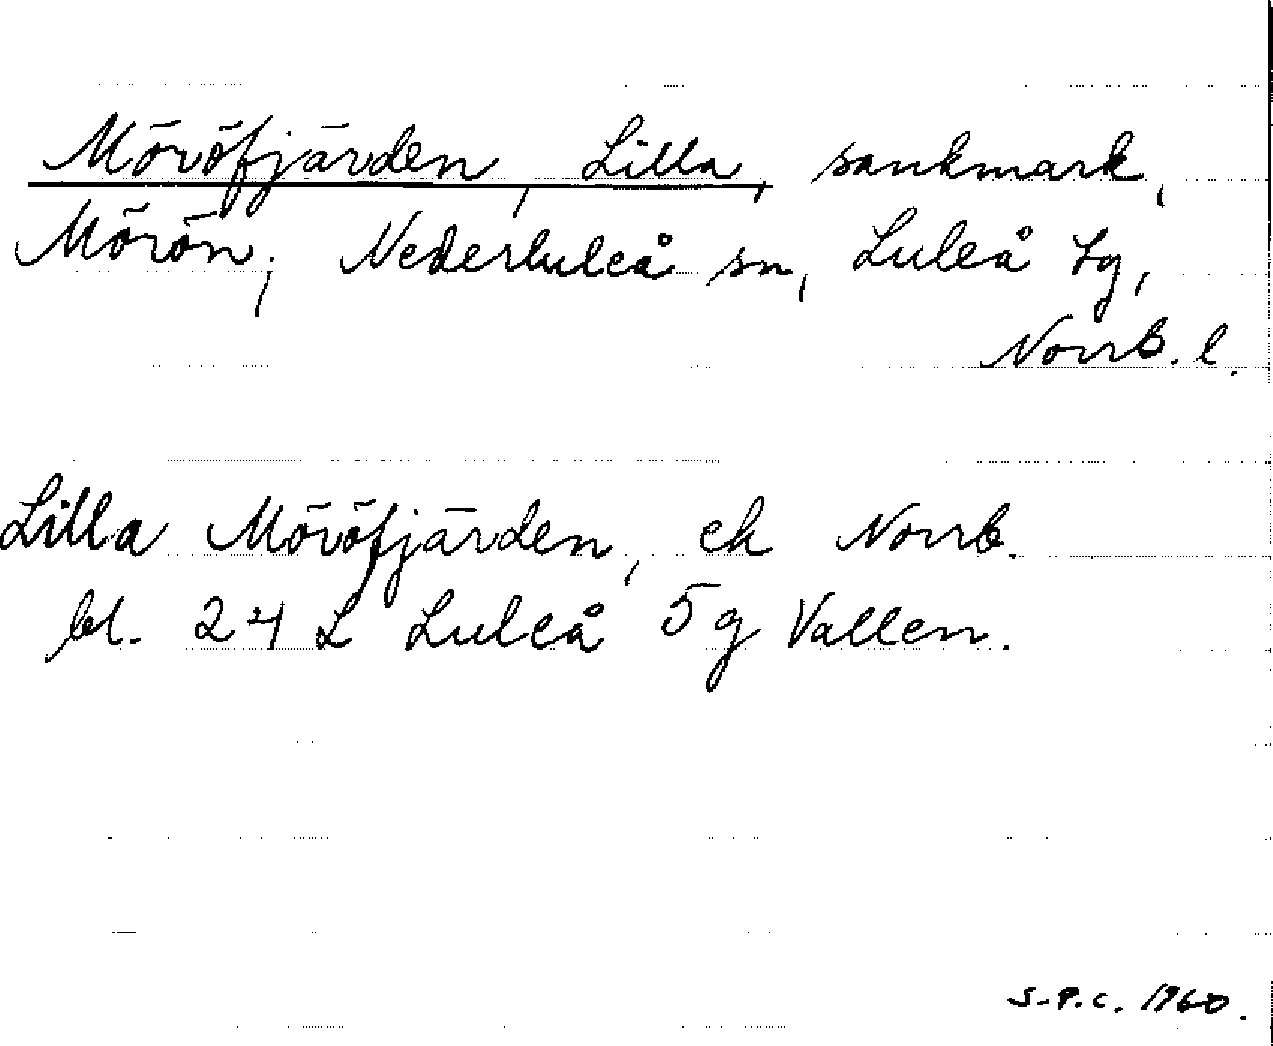 Möröfjärden, Lilla, sankmark,
Mörön, Nederluleå sn, Luleå tg,
Norrb. l.
Lilla Möröfjärden, ek Norrb.
bl. 24 L Luleå 5g Vallen.
S-P.C. 1960.